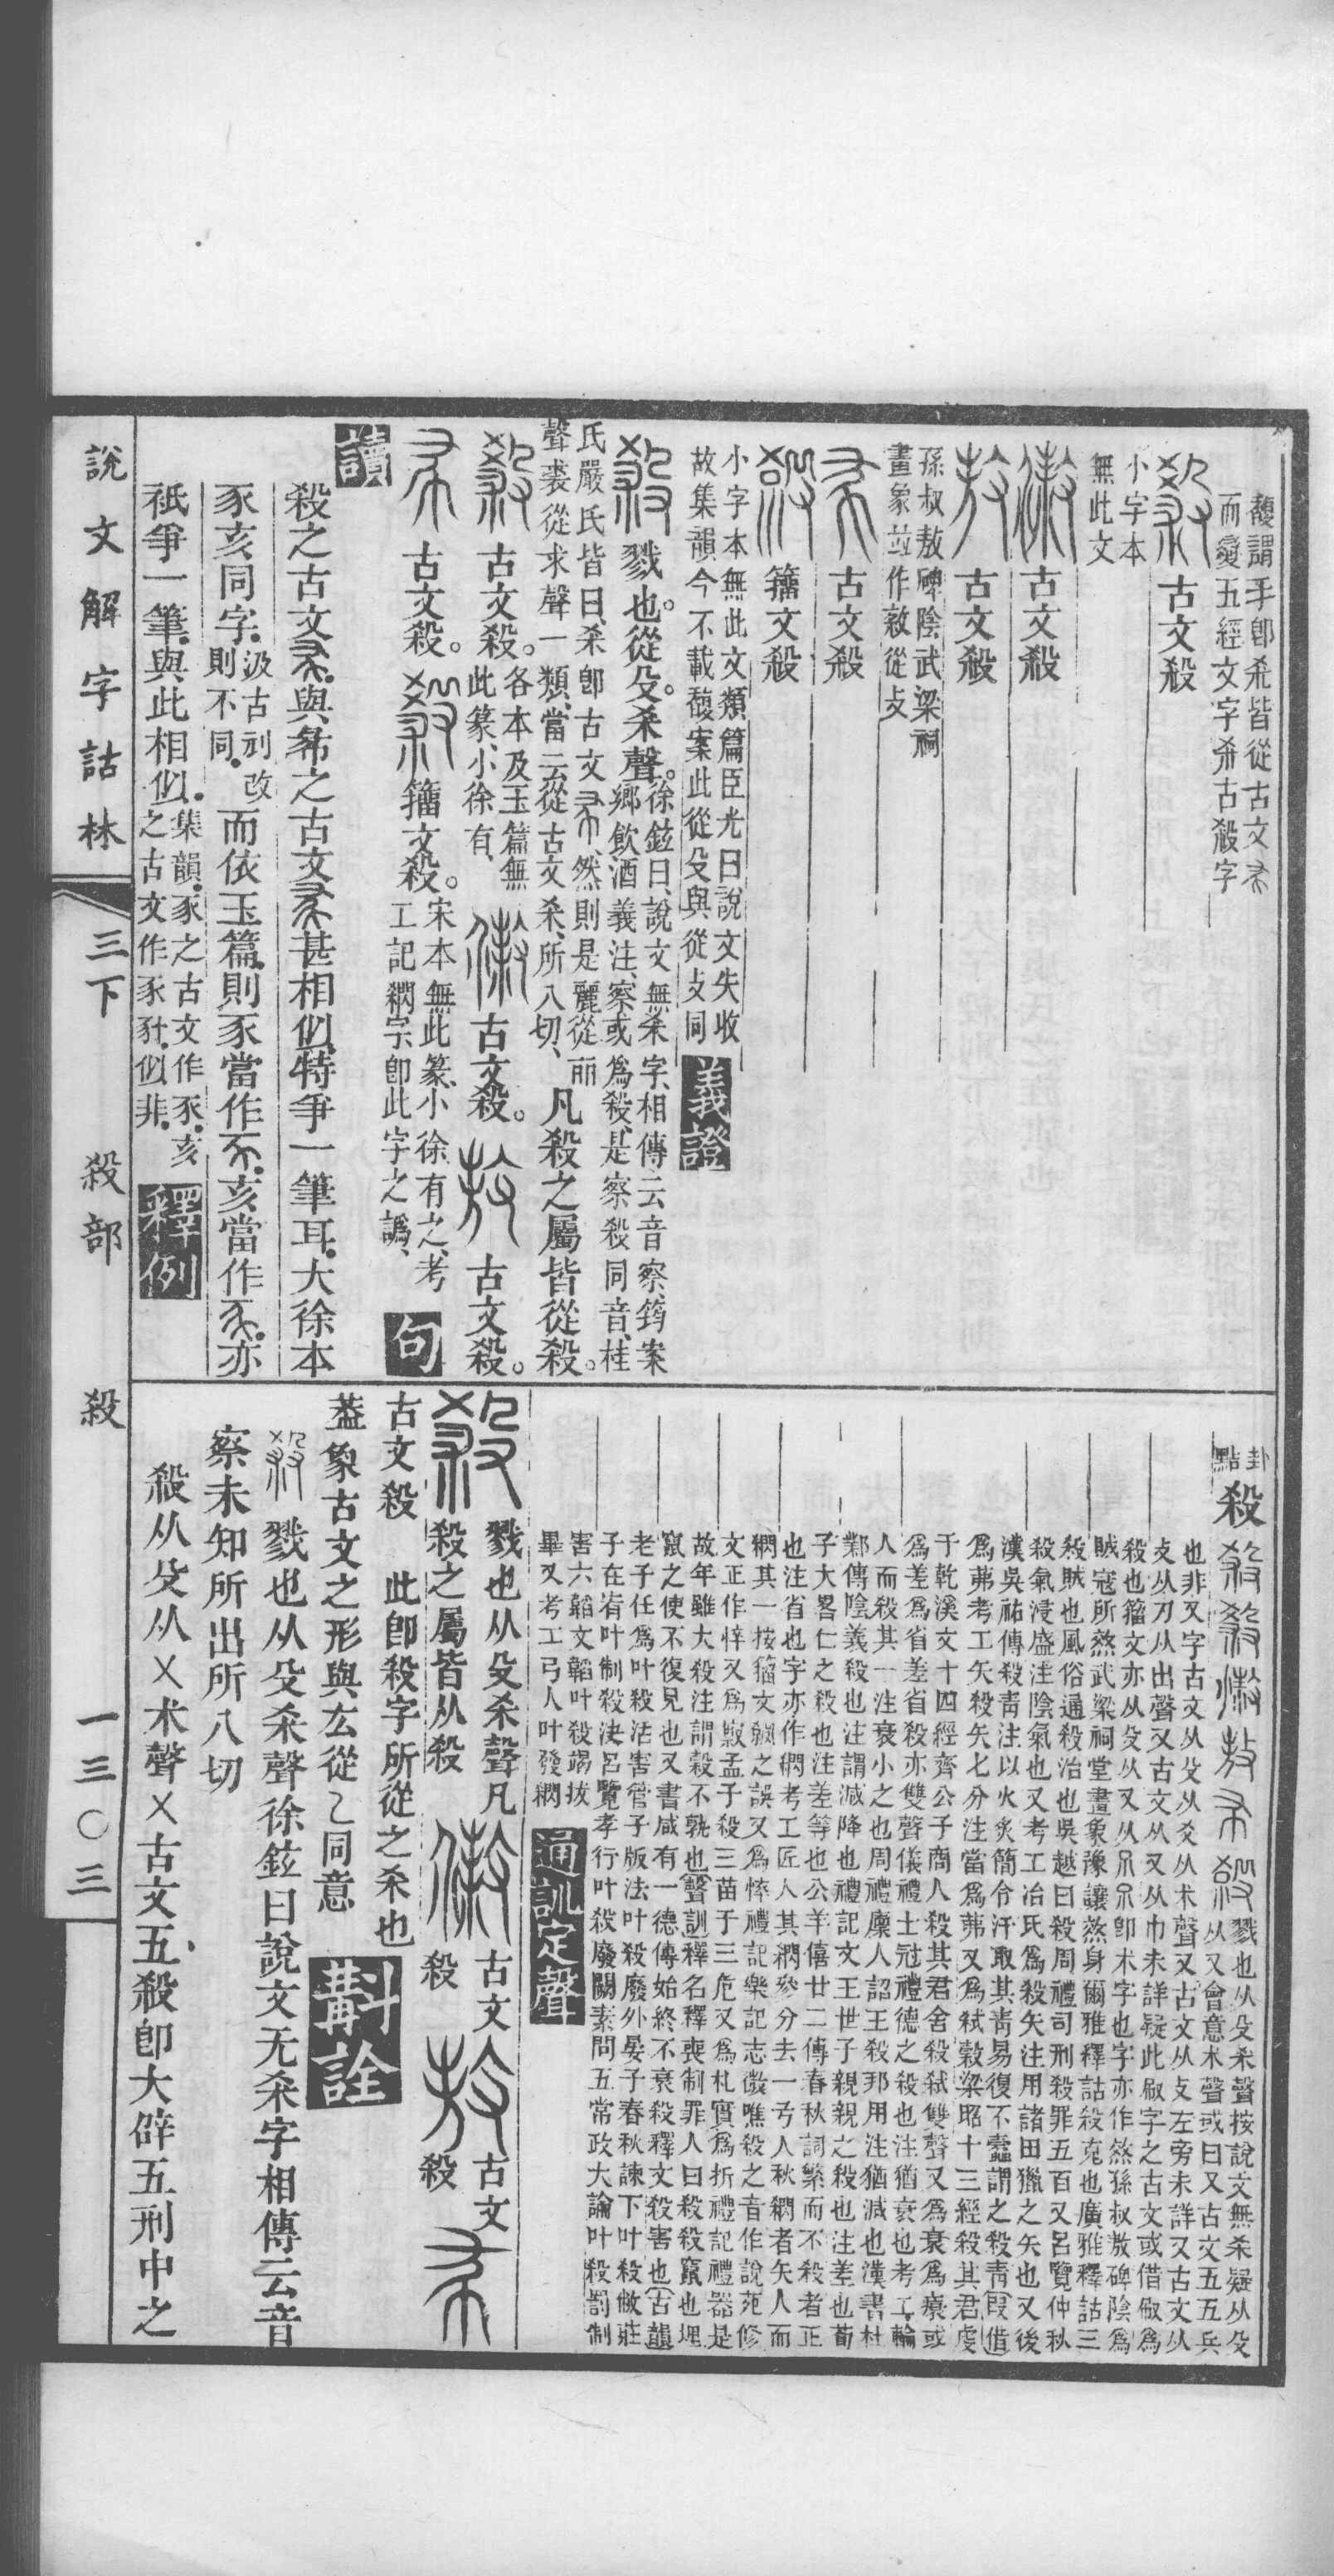 馥謂手卽殺皆從古文
而變五經文字古殺字
古文殺
小字本
無此文
古文殺
古文殺
孫叔敖碑陰武梁祠
畫象竝作敹從攴
古文殺
籀文殺
小字本無此文類篇臣光曰說文失收
故集韻今不載馥案此從殳與從攴同
義證
戮也。從殳。杀聲。
徐鉉曰、說文無杀字、相傳云音察、筠案
鄉飲酒義注、察或為殺、是察殺同音、桂
氏嚴氏皆曰、杀卽古文、然則是麗從丽
聲、裘從求聲一類、當云從古文杀、所八切、
凡殺之屬皆從殺。
古文殺。
各本及玉篇無
此篆、小徐有、
古文殺。
古文殺。
古文殺。
籀文殺。
宋本無此篆、小徐有之、考
工記䌦字、卽此字之譌、
句
讀
殺之古文與希之古文甚相似特爭一筆耳大徐本
豕亥同字
汲古刓改
則不同
而依玉篇則豕當作亥當作亦
祗爭一筆與此相似
集韻豕之古文作亥
之古文作豕似非
釋例
卦
點
殺
戮也从殳杀聲按說文無杀疑从殳
从又會意朮聲或曰又古文五五兵
也非又字古文从殳从爻从朮聲又古文从攴左旁未詳又古文从
攴从刀从出聲又古文从又从巾未詳疑此字之古文或借為
殺也籀文亦从殳从又从卽朮字也字亦作煞孫叔敖碑陰為
賊寇所煞武梁祠堂畫象豫讓煞身爾雅釋詁殺克也廣雅釋詁三
殺賊也風俗通殺治也吳越曰殺周禮司刑殺罪五百又呂覽仲秋
殺氣浸盛注陰氣也又考工冶氏為殺矢注用諸田獵之矢也又後
漢吳祐傳殺靑注以火炙簡令汗取其靑易復不蠹謂之殺靑叚借
為茀考工矢殺矢七分注當為茀又為弒穀梁昭十三經殺其君虔
于乾溪文十四經齊公子商人殺其君舍殺弒雙聲又為衰為瘵或
為差為省差省殺亦雙聲儀禮士冠禮德之殺也注猶衰也考工輪
人而殺其一注衰小之也周禮廩人詔王殺邦用注猶減也漢書杜
鄴傳陰義殺也注謂減降也禮記文王世子親親之殺也注差也荀
子大畧仁之殺也注差等也公羊僖廿二傳春秋詞繁而不殺者正
也注省也字亦作䌦考工匠人其䌦參分去一弓人秋䌦者矢人而
䌦其一按籀文之誤又為悴禮記樂記志微噍殺之音作說苑修
文正作悴又為竄孟子殺三苗于三危又為札實為折禮記禮器是
故年雖大殺注謂穀不孰也聲訓釋名釋喪制罪人曰殺殺竄也埋
竄之使不復見也又書咸有一德傳始終不衰殺釋文殺害也古韻
老子任為叶殺活害管子版法叶殺廢外晏子春秋諫下叶殺敝莊
子在宥叶制殺決呂覽孝行叶殺廢闕素問五常政大論叶殺罰制
害六韜文韜叶殺竭拔
畢又考工弓人叶發䌦
通訓定聲
戮也从殳杀聲凡
殺之屬皆从殺
古文
殺
古文
殺
古文殺
此卽殺字所從之杀也
葢象古文之形與𠫓從乁同意
斠詮
戮也从殳杀聲徐鉉曰說文无杀字相傳云音
察未知所出所八切
殺从殳从乂朮聲乂古文五殺卽大辟五刑中之
說文解字詁林
三下
殺部
殺
一三〇三